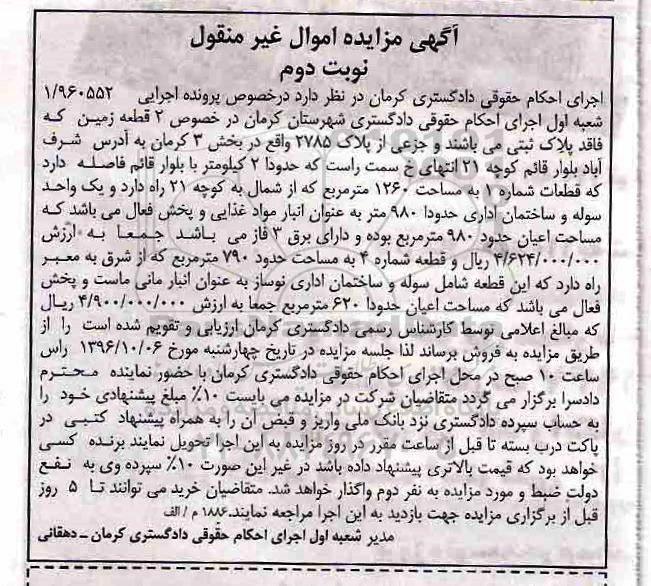 آگهی مزایده اموال غیر منقول
نوبت دوم
اجرای احکام حقوقی دادگستری کرمان در نظر دارد درخصوص پرونده اجرایی ۱/۹۶۰۵۵۲
شعبه اول اجرای احکام حقوقی دادگستری شهرستان کرمان در خصوص ۲ قطعه زمین که
فاقد پلاک ثبتی می باشند و جزعی از پلاک ۲۷۸۵ واقع در بخش ۳ کرمان به آدرس شرف
آباد بلوار قائم کوچه ۲۱ انتهای خ سمت راست که حدودا ۲ کیلومتر با بلوار قائم فاصله دارد
که قطعات شماره ۱ به مساحت ۱۲۶۰ مترمربع که از شمال به کوچه ۲۱ راه دارد و یک واحد
سوله و ساختمان اداری حدودا ۹۸۰ متر به عنوان انبار مواد غذایی و پخش فعال می باشد که
مساحت اعیان حدود ۹۸۰ مترمربع بوده و دارای برق ۳ فاز می باشد جمعا به ارزش
۴/۶۲۴/۰۰۰/۰۰۰ ریال و قطعه شماره ۴ به مساحت حدود ۷۹۰ مترمربع که از شرق به معبر
راه دارد که این قطعه شامل سوله و ساختمان اداری نوساز به عنوان انبار مانی ماست و پخش
فعال می باشد که مساحت اعیان حدودا ۶۲۰ مترمربع جمعا به ارزش ۴/۹۰۰/۰۰۰/۰۰۰ ریال
که مبالغ اعلامی توسط کارشناس رسمی دادگستری کرمان ارزیابی و تقویم شده است را از
طریق مزایده به فروش برساند لذا جلسه مزایده در تاریخ چهارشنبه مورخ ۱۳۹۶/۱۰/۰۶ راس
ساعت ۱۰ صبح در محل اجرای احکام حقوقی دادگستری کرمان با حضور نماینده محترم
دادسرا برگزار می گردد متقاضیان شرکت در مزایده می بایست ۱۰٪ مبلغ پیشنهادی خود را
به حساب سپرده دادگستری نزد بانک ملی واریز و قبض آن را به همراه پیشنهاد کتبی در
پاکت درب بسته تا قبل از ساعت مقرر در روز مزایده به این اجرا تحویل نمایند برنده کسی
خواهد بود که قیمت بالاتری پیشنهاد داده باشد در غیر این صورت ۱۰٪ سپرده وی به نفع
دولت ضبط و مورد مزایده به نفر دوم واگذار خواهد شد. متقاضیان خرید می توانند تا ۵ روز
قبل از برگزاری مزایده جهت بازدید به این اجرا مراجعه نمایند. ۱۸۸۶ م / الف
مدیر شعبه اول اجرای احکام حقوقی دادگستری کرمان ـ دهقانی